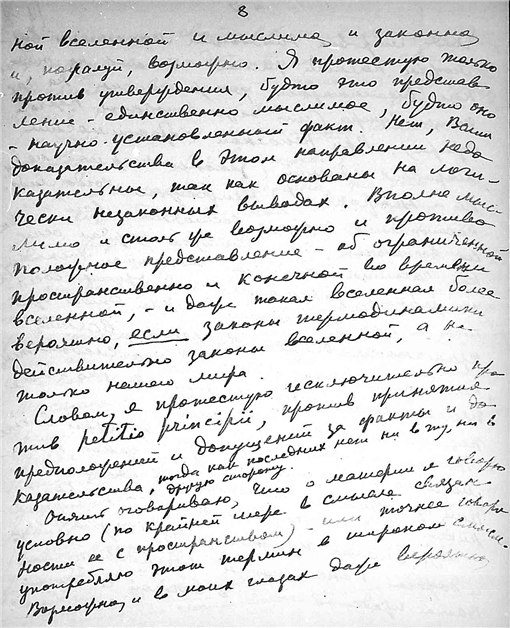 8
ной вселенной и мыслима и законна
и, пожалуй, возможно. Я протестую только
против утверждения, будто это представ
ление – единственно мыслимое, будто оно
– научно-установленный факт. Нет, Ваши
доказательства в этом направлении недо
казательны, так как основаны на логи-
чески незаконных выводах. Вполне мыс-
лимо и столь же возможно и противо
положное представление – об ограниченной
пространственно и конечной во времени
вселенной, – и даже такая вселенная более
вероятна, если законы термодинамики
действительно законы вселенной, а не
только нашего мира.
Словом, я протестую исключительно про
тив petitio principii, против принятия
предположений и допущений за факты и до
казательства, тогда как последних нет ни в ту, ни в
другую сторону.
Опять оговариваю, что о материи я говорю
условно (по крайней мере в смысле связан-
ности ее с пространством) – или точнее говоря
употребляю этот термин в широком смысле.
Возможно, и в моих глазах даже вероятно